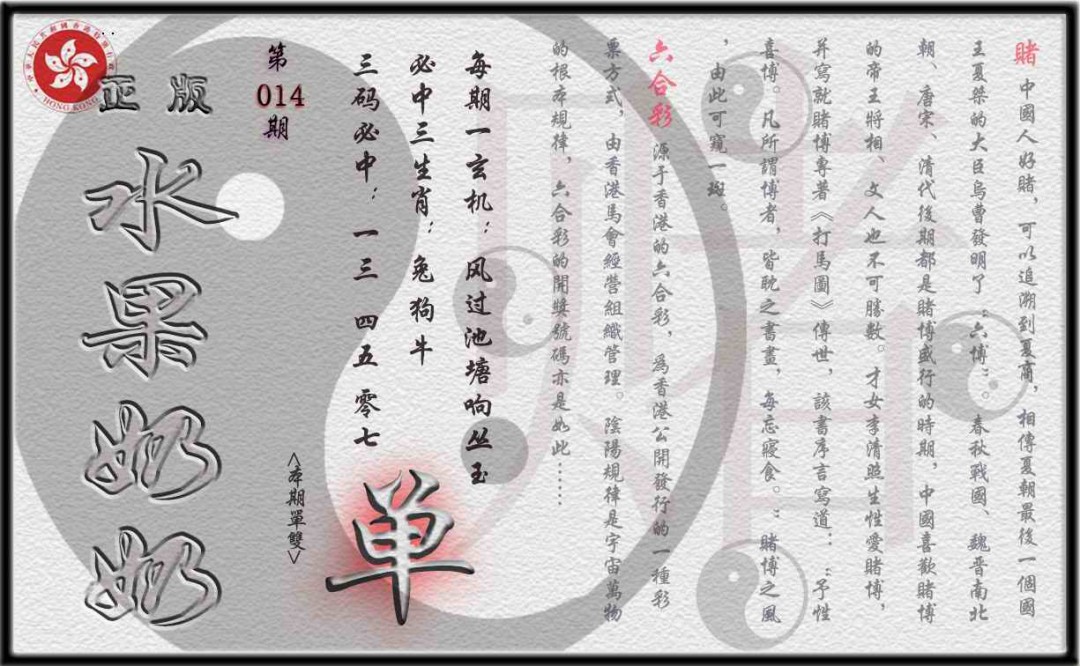 賭 中國人好賭，可以追溯到夏商，相傳夏朝最後一個國
王夏桀的大臣烏曹發明了：六博：。春秋戰國、魏晉南北
朝、唐宋、清代後期都是賭博盛行的時期，中國喜歡賭博
的帝王將相、文人也不可勝數。才女李清照生性愛賭博，
并寫就賭博專著《打馬圖》傳世，該書序言寫道：：予性
喜博。凡所謂博者，皆耽之書畫，每忘寢食。：賭博之風
，由此可窺一斑。
六合彩 源于香港的六合彩，為香港公開發行的一種彩
票方式，由香港馬會經營組織管理。陰陽規律是宇宙萬物
的根本規律，六合彩的開獎號碼亦是如此……
每期一玄机：风过池塘响丛玉
必中三生肖：兔狗牛
三码必中：一三 四五 零七
第014期
<本期單雙>
单
正版
水果奶奶
HONG KONG